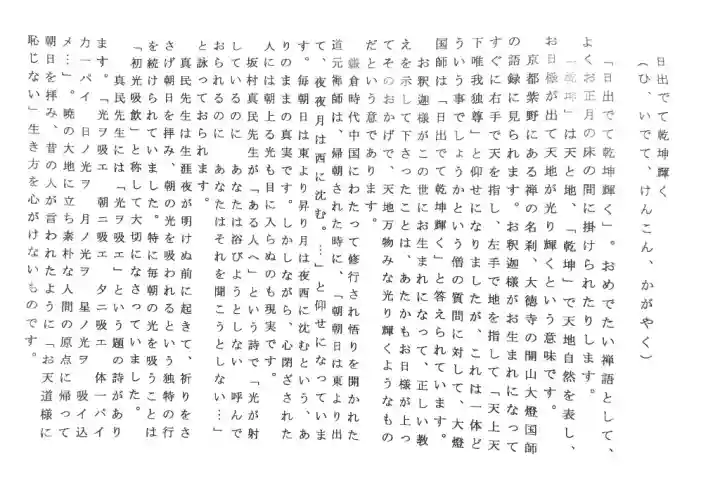 日出でて乾坤輝く
（ひ、いでて、けんこん、かがやく）
「日出でて乾坤輝く」。おめでたい禅語として、
よくお正月の床の間に掛けられたりします。
「乾坤」は天と地、「乾坤」で天地自然を表し、
お日様が出て天地が光り輝くという意味です。
京都紫野にある禅の名刹、大徳寺の開山大燈国師
の語録に見られます。お釈迦様がお生まれになって
すぐに右手で天を指し、左手で地を指して「天上天
下唯我独尊」と仰せになりましたが、これは一体ど
ういう事でしょうかという僧の質問に対して、大燈
国師は「日出でて乾坤輝く」と答えられています。
お釈迦様がこの世にお生まれになって、正しい教
えを示して下さったことは、あたかもお日様が上っ
てそのおかげで、天地万物みな光り輝くようなもの
だという意であります。
鎌倉時代中国にわたって修行され悟りを開かれた
道元禅師は、帰朝された時に、「朝朝日は東より出
て、夜夜月は西に沈む。…」と仰せになっていま
す。毎朝日は東より昇り月は夜西に沈むという、あ
りのままの真実です。しかしながら、心閉ざされた
人には朝上る光も目に入らぬのも現実です。
坂村真民先生が「ある人へ」という詩で「光が射
しているのに　あなたは浴びようとしない　呼んで
おられるのに　あなたはそれを聞こうとしない…」
と詠っておられます。
真民先生は生涯夜が明けぬ前に起きて、祈りをさ
さげ朝日を拝み、朝の光を吸われるという独特の行
を続けられていました。特に毎朝の光を吸うことは
「初光吸飲」と称して大切になさっていました。
真民先生には「光ヲ吸エ」という題の詩があり
ます。「光ヲ吸エ　朝ニ吸エ　夕ニ吸エ　体一パイ
カ一パイ　日ノ光ヲ　月ノ光ヲ　星ノ光ヲ　吸イ込
メ…」。暁の大地に立ち素朴な人間の原点に帰って
朝日を拝み、昔の人が言われたように「お天道様に
恥じない」生き方を心がけないものです。